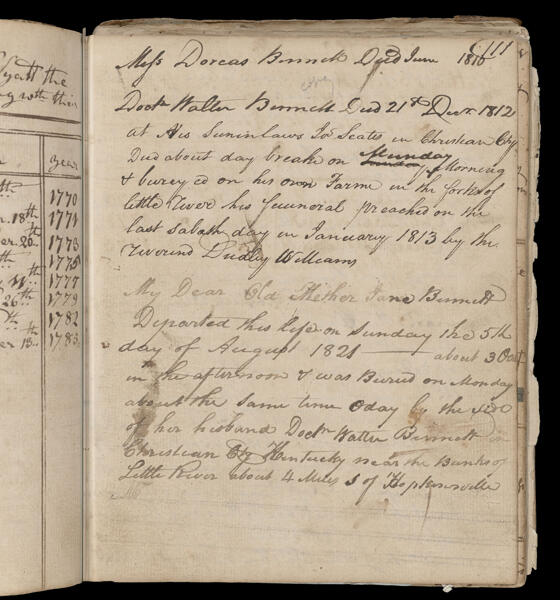 Wyatt the
growth their
year
1770
18th 1771
1773
1775
1777
26th 1779
1782
1783
111
Miss Dorcas Bennett Died June 1816
Doctr Walter Bennett Died 21st Decr 1812
at His Suninlaws Js Seates in Christian Cty
Died about day breake on Munday
Morning
& burey ed on his own Farme in the forks of
little River his Funoral preached on the
last sabath day in January 1813 by the
Reverind Dudley Williams
My Dear Old Mether Jane Bennett
Departed this life on Sunday the 5th
day of August 1821 — about 3 Oclk
in the afternoon & was Buried on Monday
about the same time Oday by the side
of her husband Doctr Walter Bennett in
Christian Cty Kentucky near the Banks of
Little River about 4 Miles S of Hopkinsville